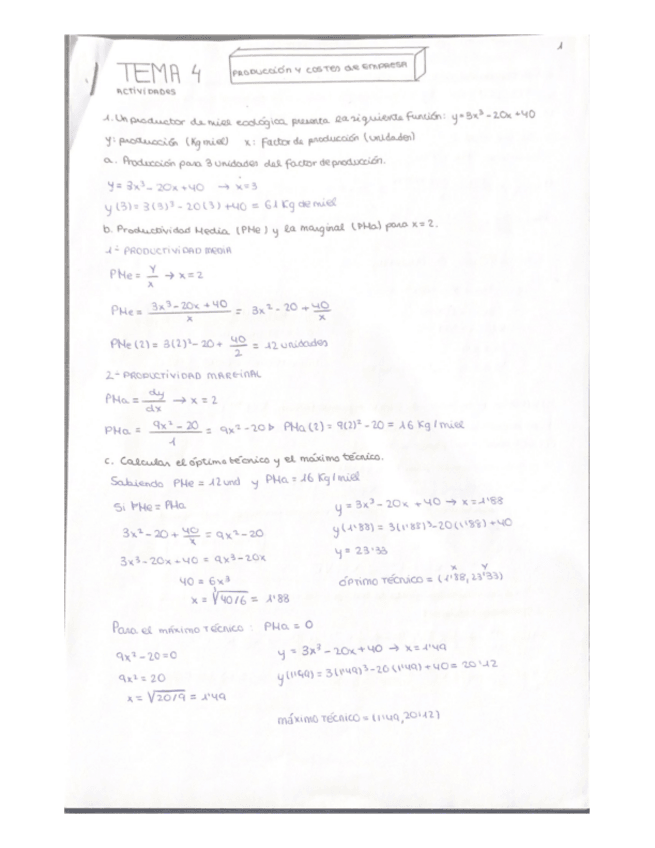 1
TEMA 4
PRODUCCIÓN Y COSTES de EMPRESA
ACTIVIDADES
1. Un productor de miel ecológica, presenta la siguiente función: y=3x³-20x+40
y: producción (Kg miel) x: Factor de producción (unidades)
a. Producción para 3 unidades del factor de producción.
y = 3x³ - 20x + 40 → x=3
y(3) = 3(3)³ - 20(3) + 40 = 61 Kg de miel
b. Productividad Media (PMe) y la marginal (PMa) para x=2.
1- PRODUCTIVIDAD MEDIA
PMe = y/x → x=2
PMe = 3x³-20x+40/x = 3x² - 20 + 40/x
PMe(2) = 3(2)² - 20 + 40/2 = 12 unidades
2- PRODUCTIVIDAD MARGINAL
PMa = dy/dx → x=2
PMa = 9x²-20/1 = 9x²-20 PMa(2) = 9(2)² - 20 = 16 Kg/miel
c. Calcular el óptimo técnico y el máximo técnico.
Sabiendo PMe = 12 und y PMa = 16 Kg/miel
Si PMe = PMa
3x²-20 + 40/x = 9x²-20
3x³-20x+40 = 9x³-20x
40 = 6x³
x = ³√40/6 = 1'88
y = 3x³ - 20x + 40 → x=1'88
y(1'88) = 3(1'88)³-20(1'88)+40
y = 23'33
x y
óptimo técnico = (1'88, 23'33)
Para el máximo técnico: PMa = 0
9x²-20=0
9x² = 20
x = √20/9 = 1'49
y = 3x³ - 20x + 40 → x=1'49
y(1'49) = 3(1'49)³ - 20(1'49) + 40 = 20'12
máximo técnico = (1'49, 20'12)